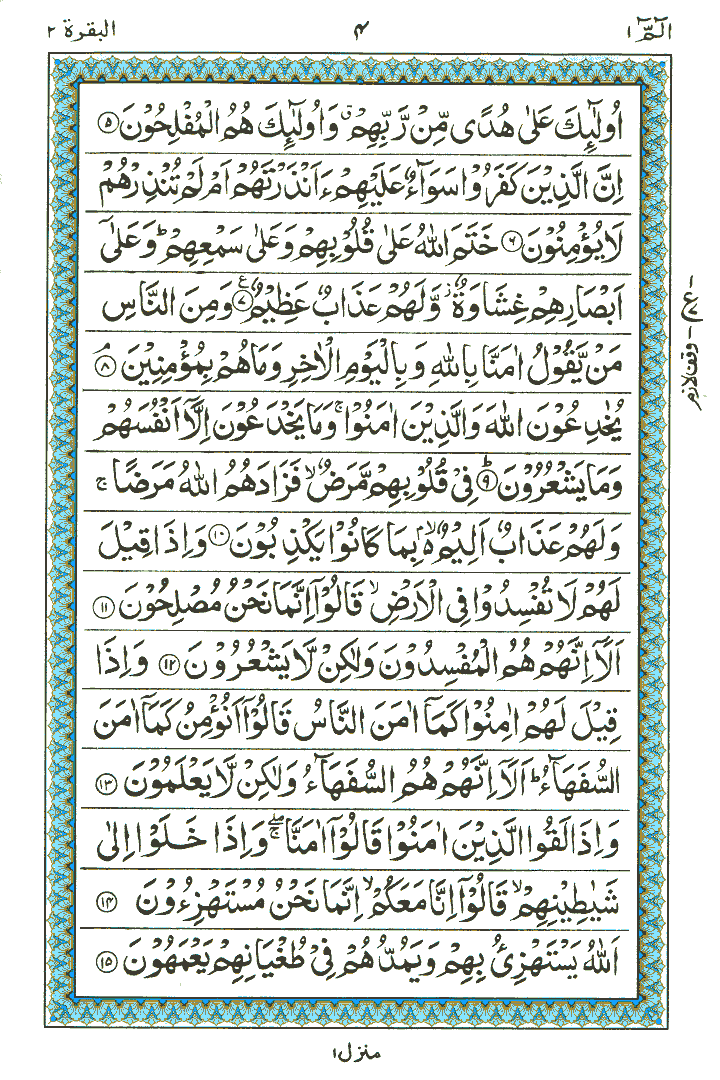 الٓمّٓ ١ ۴ البقرة ٢
اُولٰٓئِكَ عَلٰى هُدًى مِّنْ رَّبِّهِمْ ۙ وَاُولٰٓئِكَ هُمُ الْمُفْلِحُوْنَ ۝۵
اِنَّ الَّذِيْنَ كَفَرُوْا سَوَآءٌ عَلَيْهِمْ ءَاَنْذَرْتَهُمْ اَمْ لَمْ تُنْذِرْهُمْ
لَا يُؤْمِنُوْنَ ۝۶ خَتَمَ اللّٰهُ عَلٰى قُلُوْبِهِمْ وَعَلٰى سَمْعِهِمْ ؕ وَعَلٰٓى
اَبْصَارِهِمْ غِشَاوَةٌ ۫ وَّلَهُمْ عَذَابٌ عَظِيْمٌ ۝۷ ع وَمِنَ النَّاسِ
مَنْ يَّقُوْلُ اٰمَنَّا بِاللّٰهِ وَبِالْيَوْمِ الْاٰخِرِ وَمَا هُمْ بِمُؤْمِنِيْنَ ۘ ۝۸
يُخٰدِعُوْنَ اللّٰهَ وَالَّذِيْنَ اٰمَنُوْا ۚ وَمَا يَخْدَعُوْنَ اِلَّآ اَنْفُسَهُمْ
وَمَا يَشْعُرُوْنَ ؕ ۝۹ فِيْ قُلُوْبِهِمْ مَّرَضٌ ۙ فَزَادَهُمُ اللّٰهُ مَرَضًا ۚ
وَلَهُمْ عَذَابٌ اَلِيْمٌ ۢ ۙ بِمَا كَانُوْا يَكْذِبُوْنَ ۝۱۰ وَاِذَا قِيْلَ
لَهُمْ لَا تُفْسِدُوْا فِى الْاَرْضِ ۙ قَالُوْٓا اِنَّمَا نَحْنُ مُصْلِحُوْنَ ۝۱۱
اَلَآ اِنَّهُمْ هُمُ الْمُفْسِدُوْنَ وَلٰكِنْ لَّا يَشْعُرُوْنَ ۝۱۲ وَاِذَا
قِيْلَ لَهُمْ اٰمِنُوْا كَمَآ اٰمَنَ النَّاسُ قَالُوْٓا اَنُؤْمِنُ كَمَآ اٰمَنَ
السُّفَهَآءُ ؕ اَلَآ اِنَّهُمْ هُمُ السُّفَهَآءُ وَلٰكِنْ لَّا يَعْلَمُوْنَ ۝۱۳
وَاِذَا لَقُوا الَّذِيْنَ اٰمَنُوْا قَالُوْٓا اٰمَنَّا ۖۚ وَاِذَا خَلَوْا اِلٰى
شَيٰطِيْنِهِمْ ۙ قَالُوْٓا اِنَّا مَعَكُمْ ۙ اِنَّمَا نَحْنُ مُسْتَهْزِءُوْنَ ۝۱۴
اَللّٰهُ يَسْتَهْزِئُ بِهِمْ وَيَمُدُّهُمْ فِيْ طُغْيَانِهِمْ يَعْمَهُوْنَ ۝۱۵
وقف لازم
منزل ١